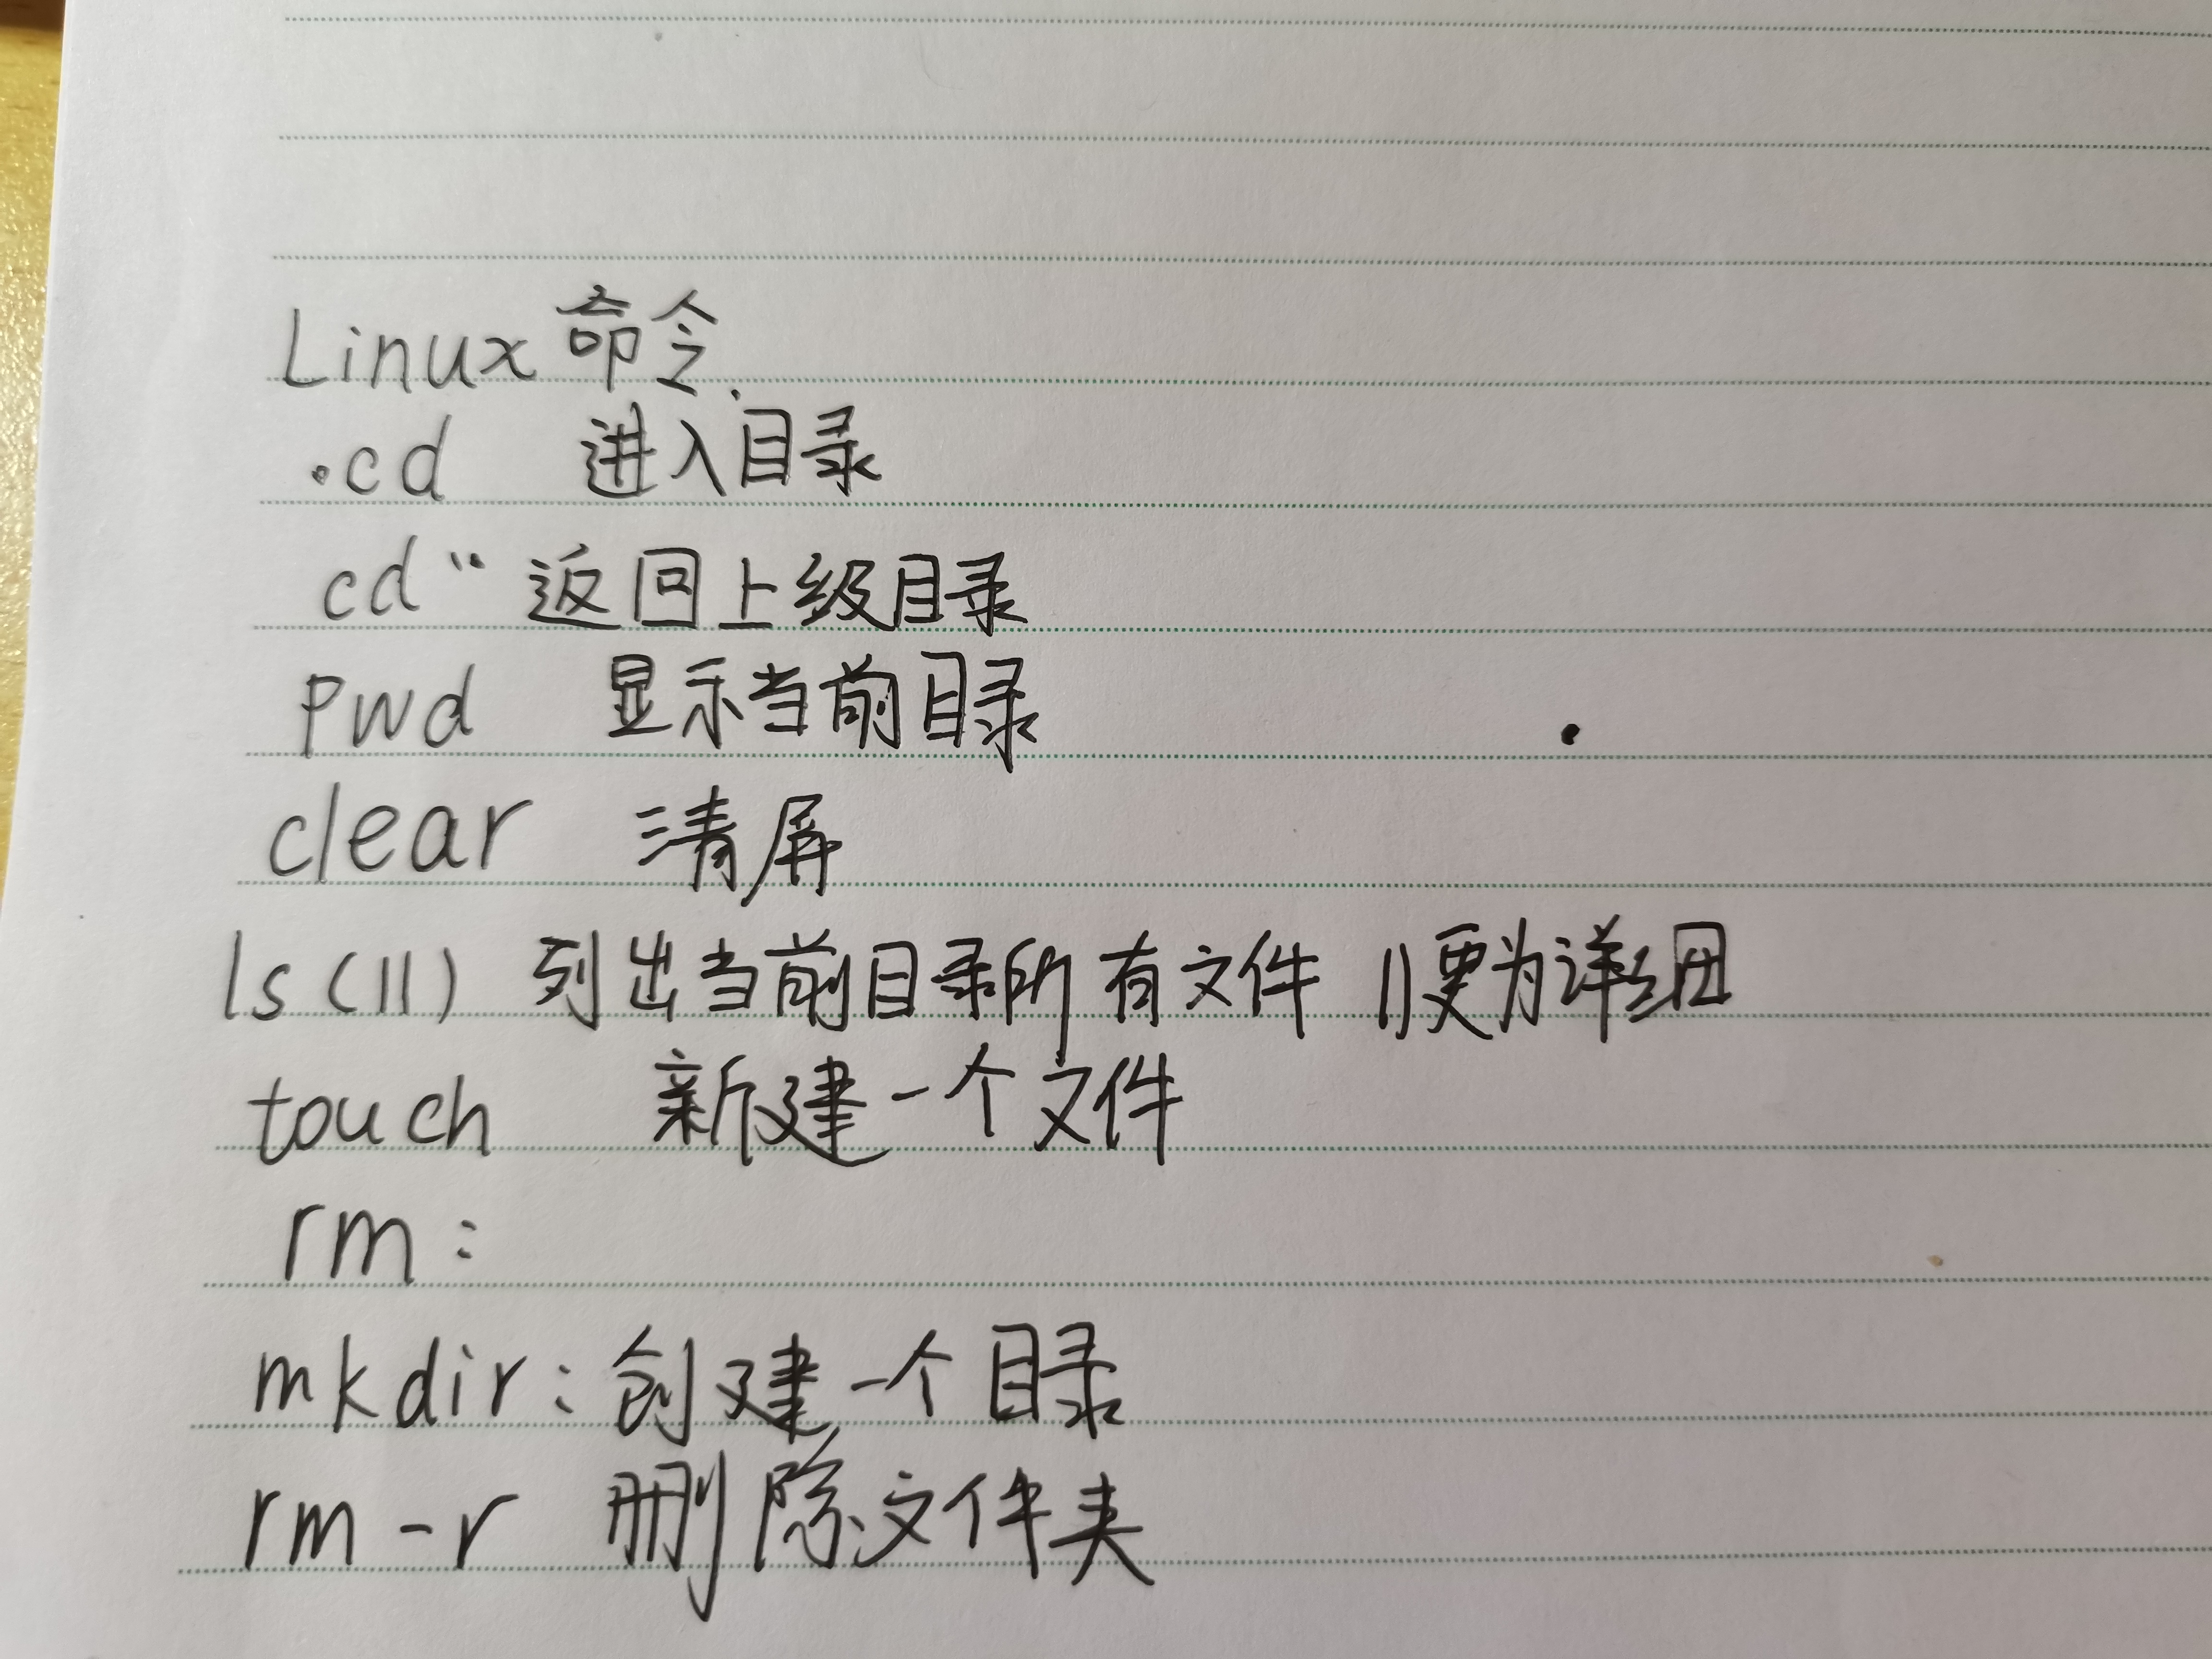 Linux 命令.
·cd 进入目录
cd .. 返回上级目录
pwd 显示当前目录
clear 清屏
ls (ll) 列出当前目录所有文件 ll更为详细
touch 新建一个文件
rm:
mkdir: 创建一个目录
rm -r 删除文件夹